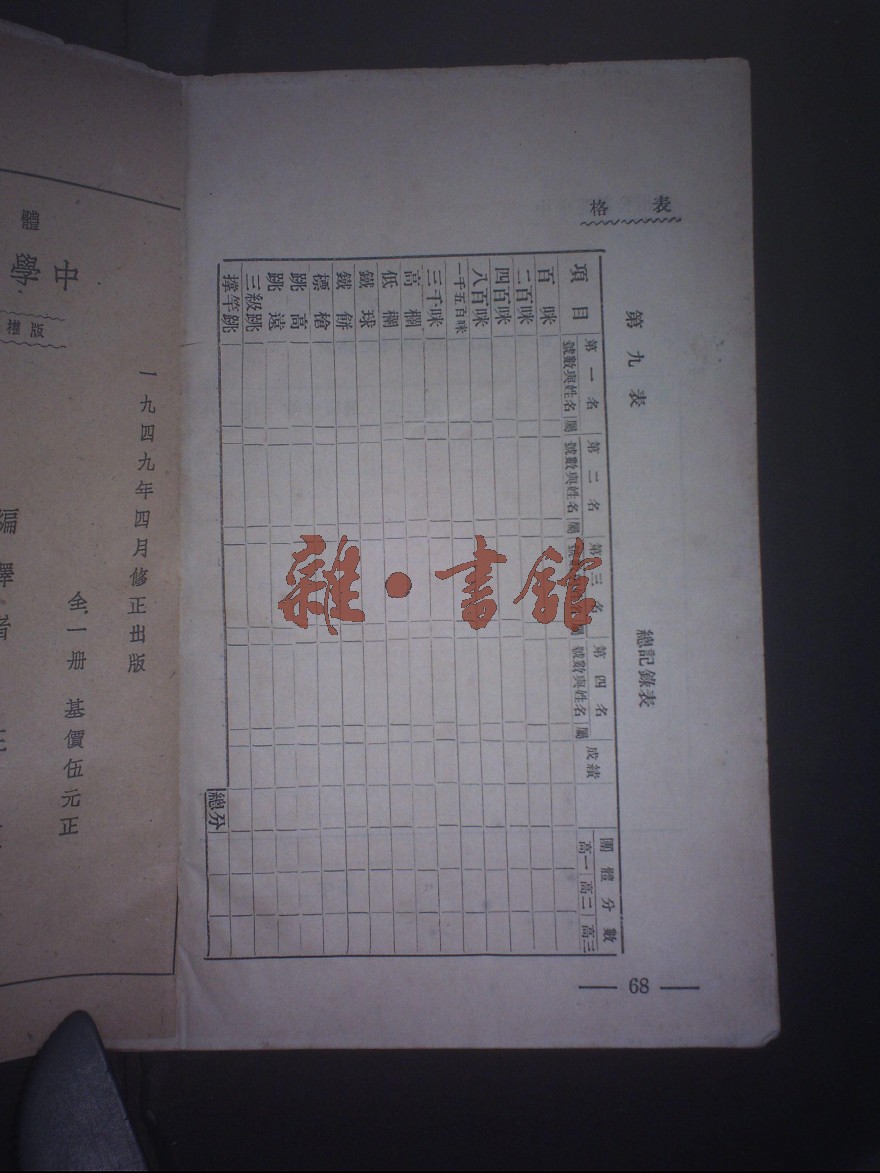 表 格
第九表 總記錄表
項目 第一名 第二名 第三名 第四名 成績 團體分數
號數與姓名 屬 號數與姓名 屬 號 屬 號數與姓名 屬 高一 高二 高三
百咪
二百咪
四百咪
八百咪
一千五百咪
三千咪
高欄
低欄
鐵球
鐵餅
標槍
跳高
跳遠
三級跳
撐竿跳
總分
68
雜·書館
體
中學
版權
一九四九年四月修正出版
全一册 基價伍元正
編譯者